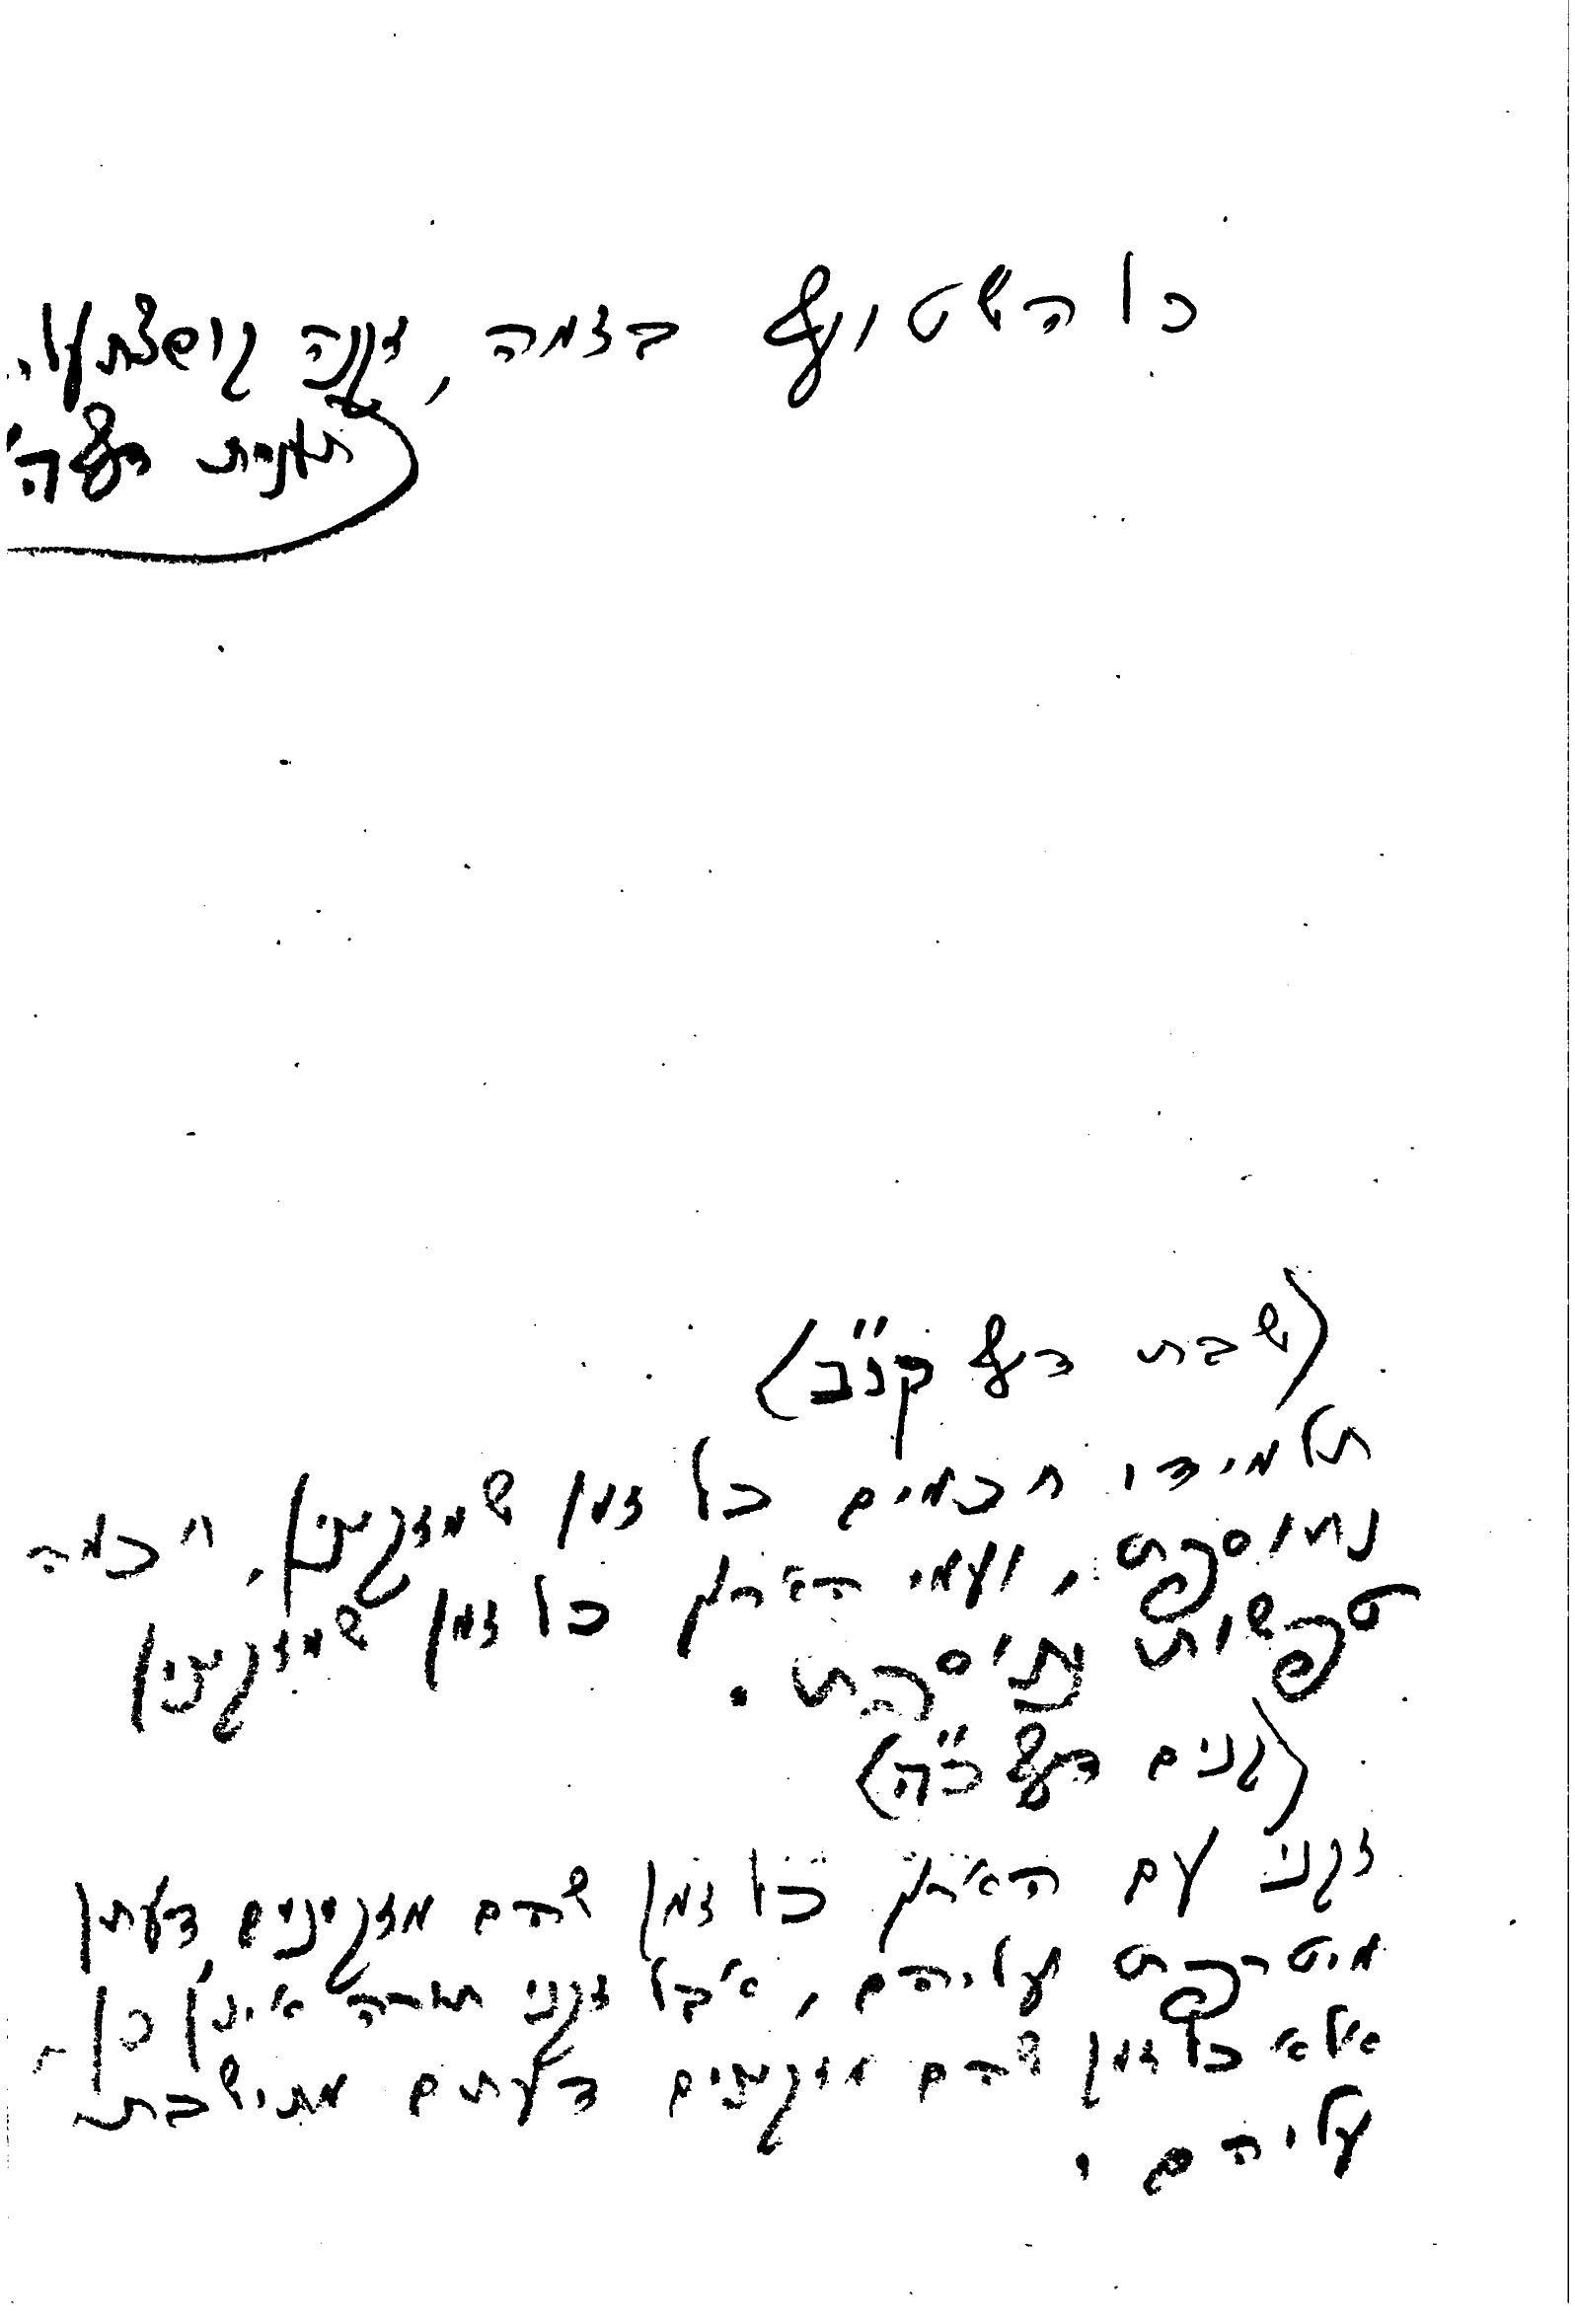 כל השטוף בזמה, זקנה קופצת עליו
תענית דף ה'
(שבת דף קנ"ב)
תלמידי חכמים כל זמן שמזקינין, חכמה
נתוספת, ועמי הארץ כל זמן שמזקינין
טפשות נתוספת.
(קנים דף כ"ה)
זקני עם הארץ כל זמן שהם מזקינים, דעתן
מיטרפת עליהם, אבל זקני תורה אינן כן
אלא כל זמן שהם מזקינים דעתם מתישבת
עליהם.